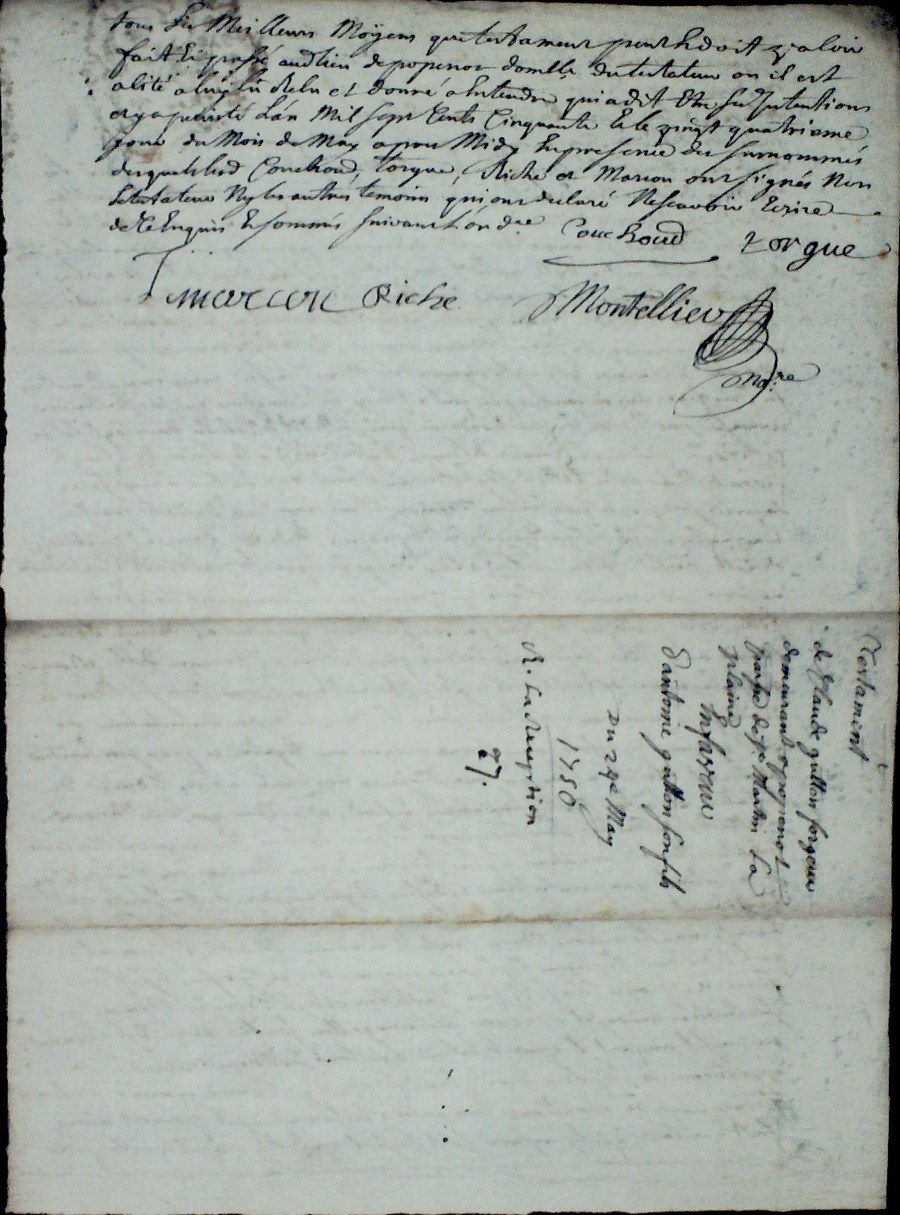 tous les Meilleurs Moÿens que testament peut et doit valoir
fait et passé audit lieu de poyenot domille du testateur ou il est
alité a luy lu Relu et donné a Entendre qui a dit Etre ses Intentions
et y a persisté L'an Mil sept Cents Cinquante Et le vingt quatrieme
jour du Mois de May apres Midy En presence des surnommés
desquels led Couchoud, torgue, Riche et Marcon ont signés Non
Le testateur Ny les autres temoins qui ont declaré Ne scavoir Ecrire
de ce Enquis Et sommés suivant l'ord.ce Couchoud torgue
marcon Riche Montellier
No.re
Testament
de Claude guitton forgeur
demeurant a poyenot
parpe de St Martin La
plaine
En faveur
d'antoine guitton son fils
Du 24e May
1750
R. La Reception